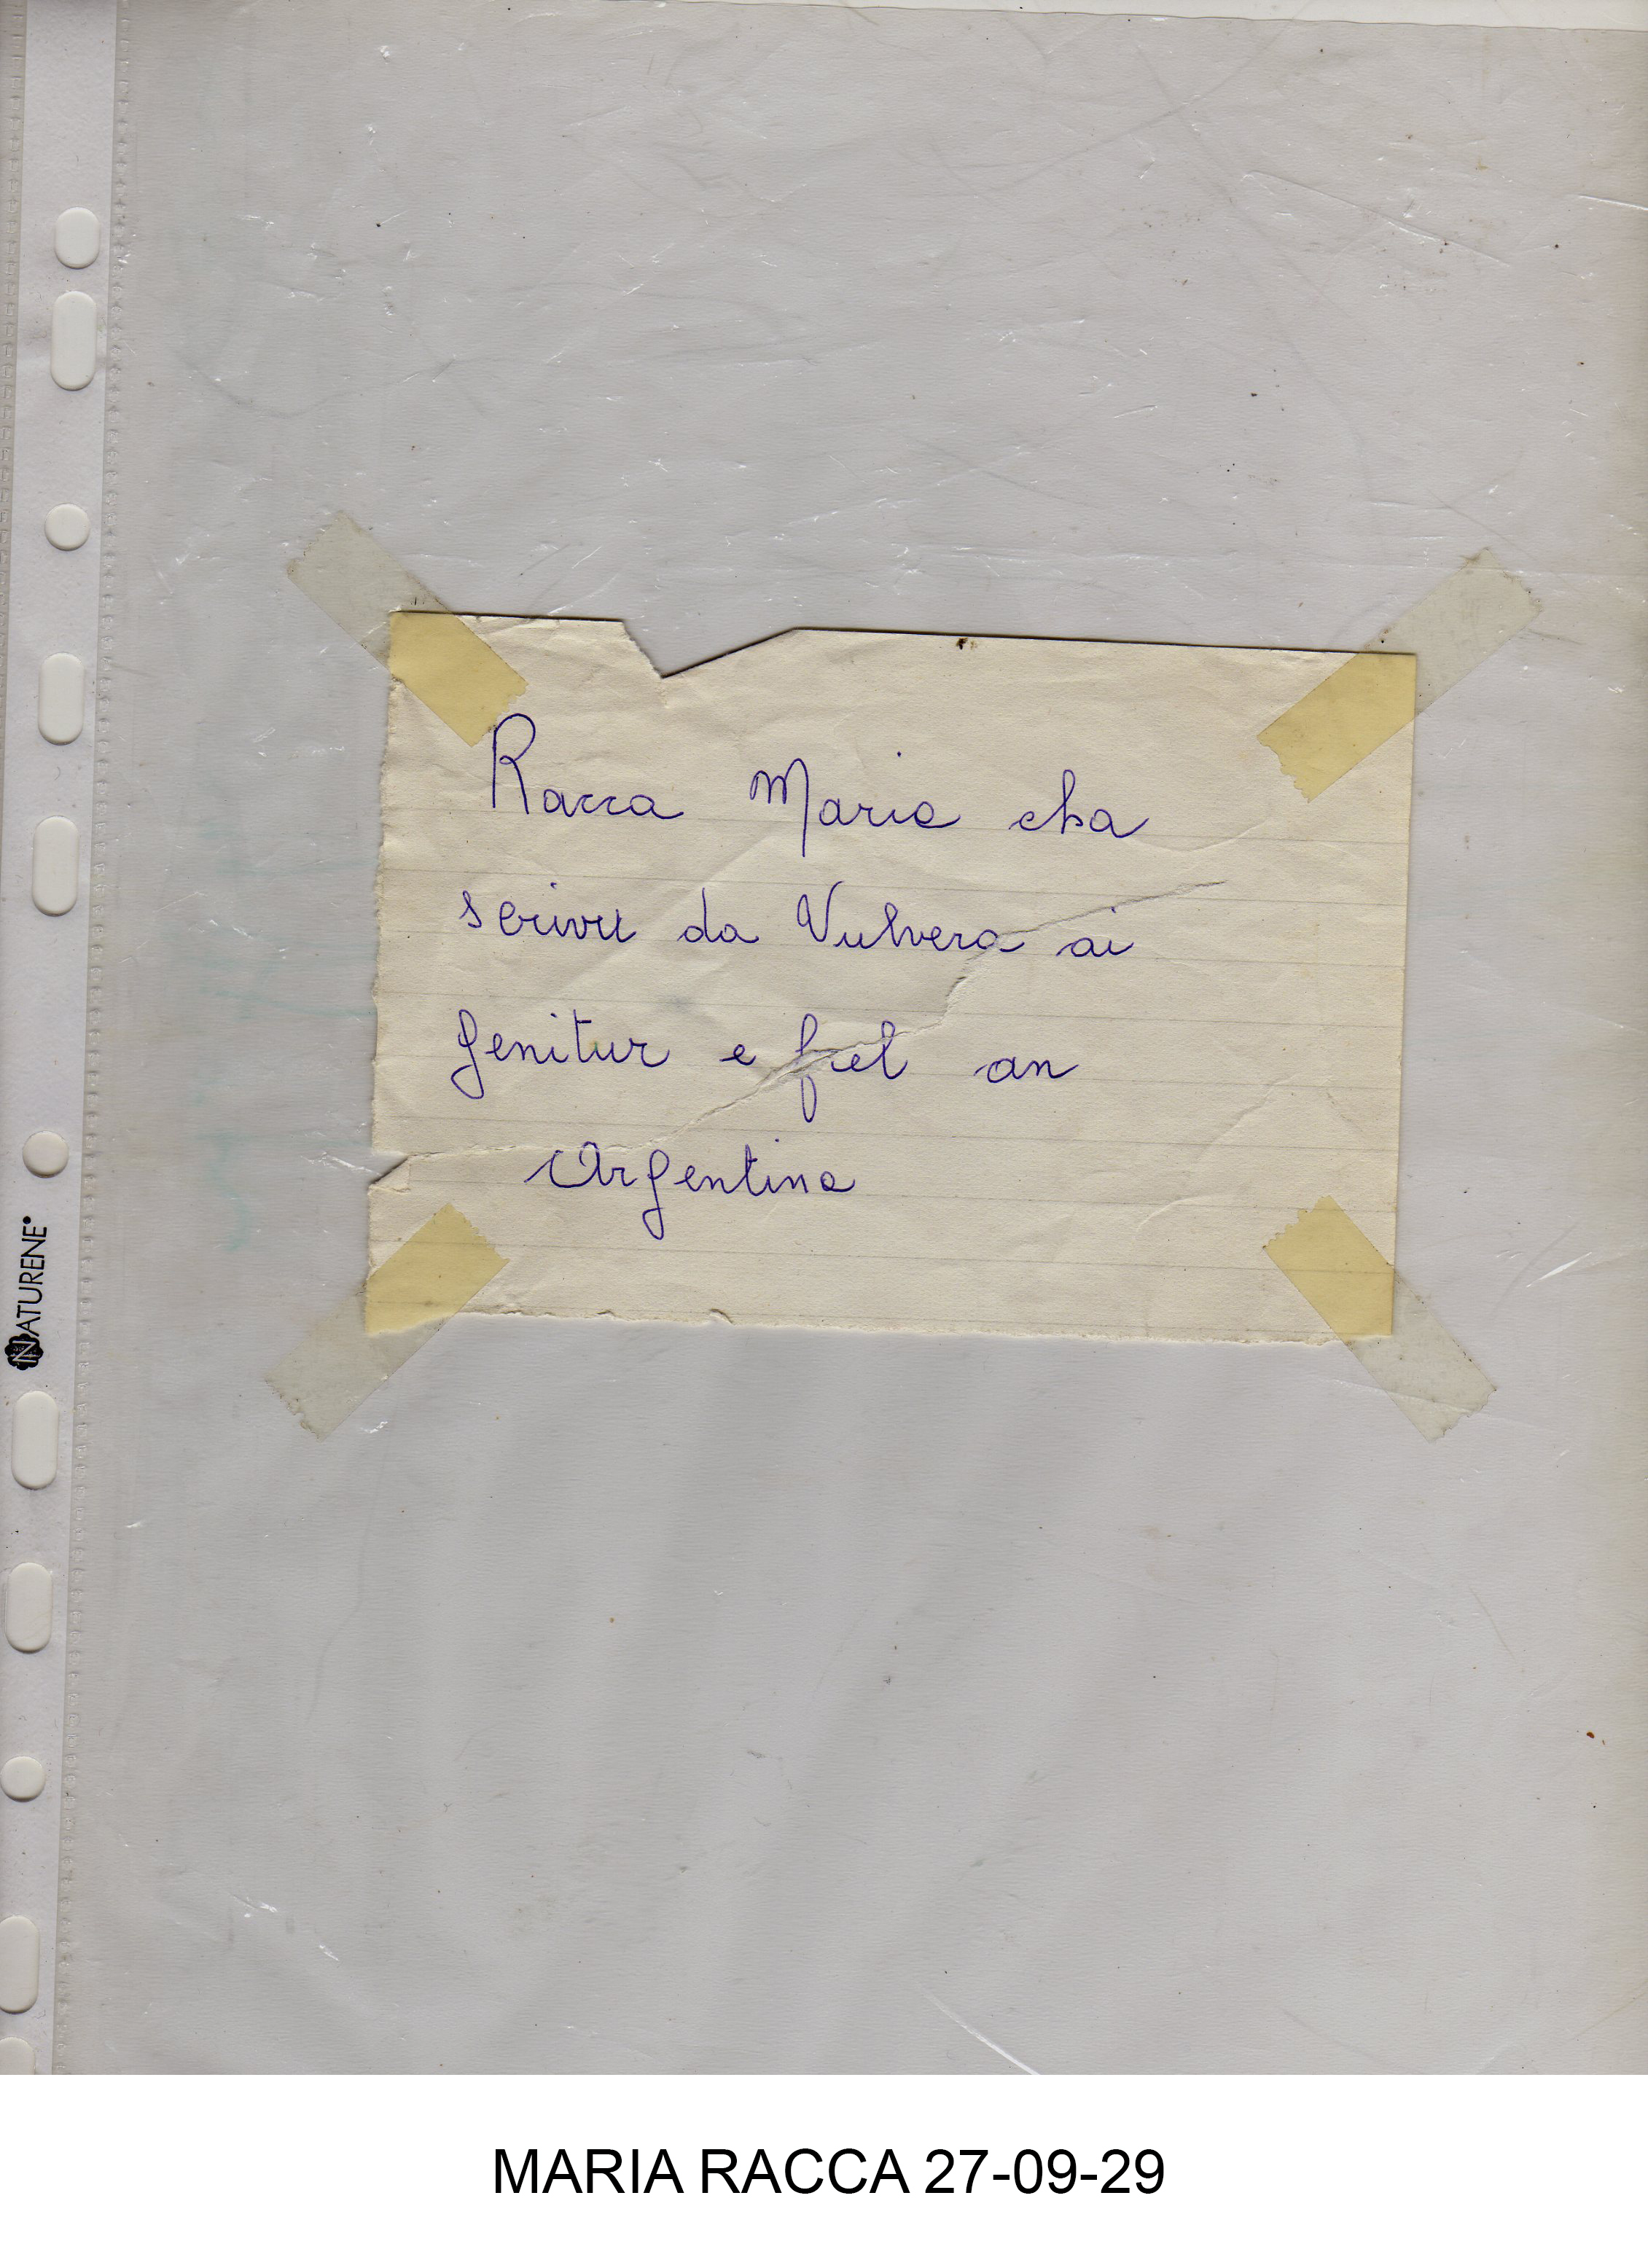 Racca Maria cha
scrivu da Vulvera ai
genitur e fiel an
Argentina
NATURENE
MARIA RACCA 27-09-29